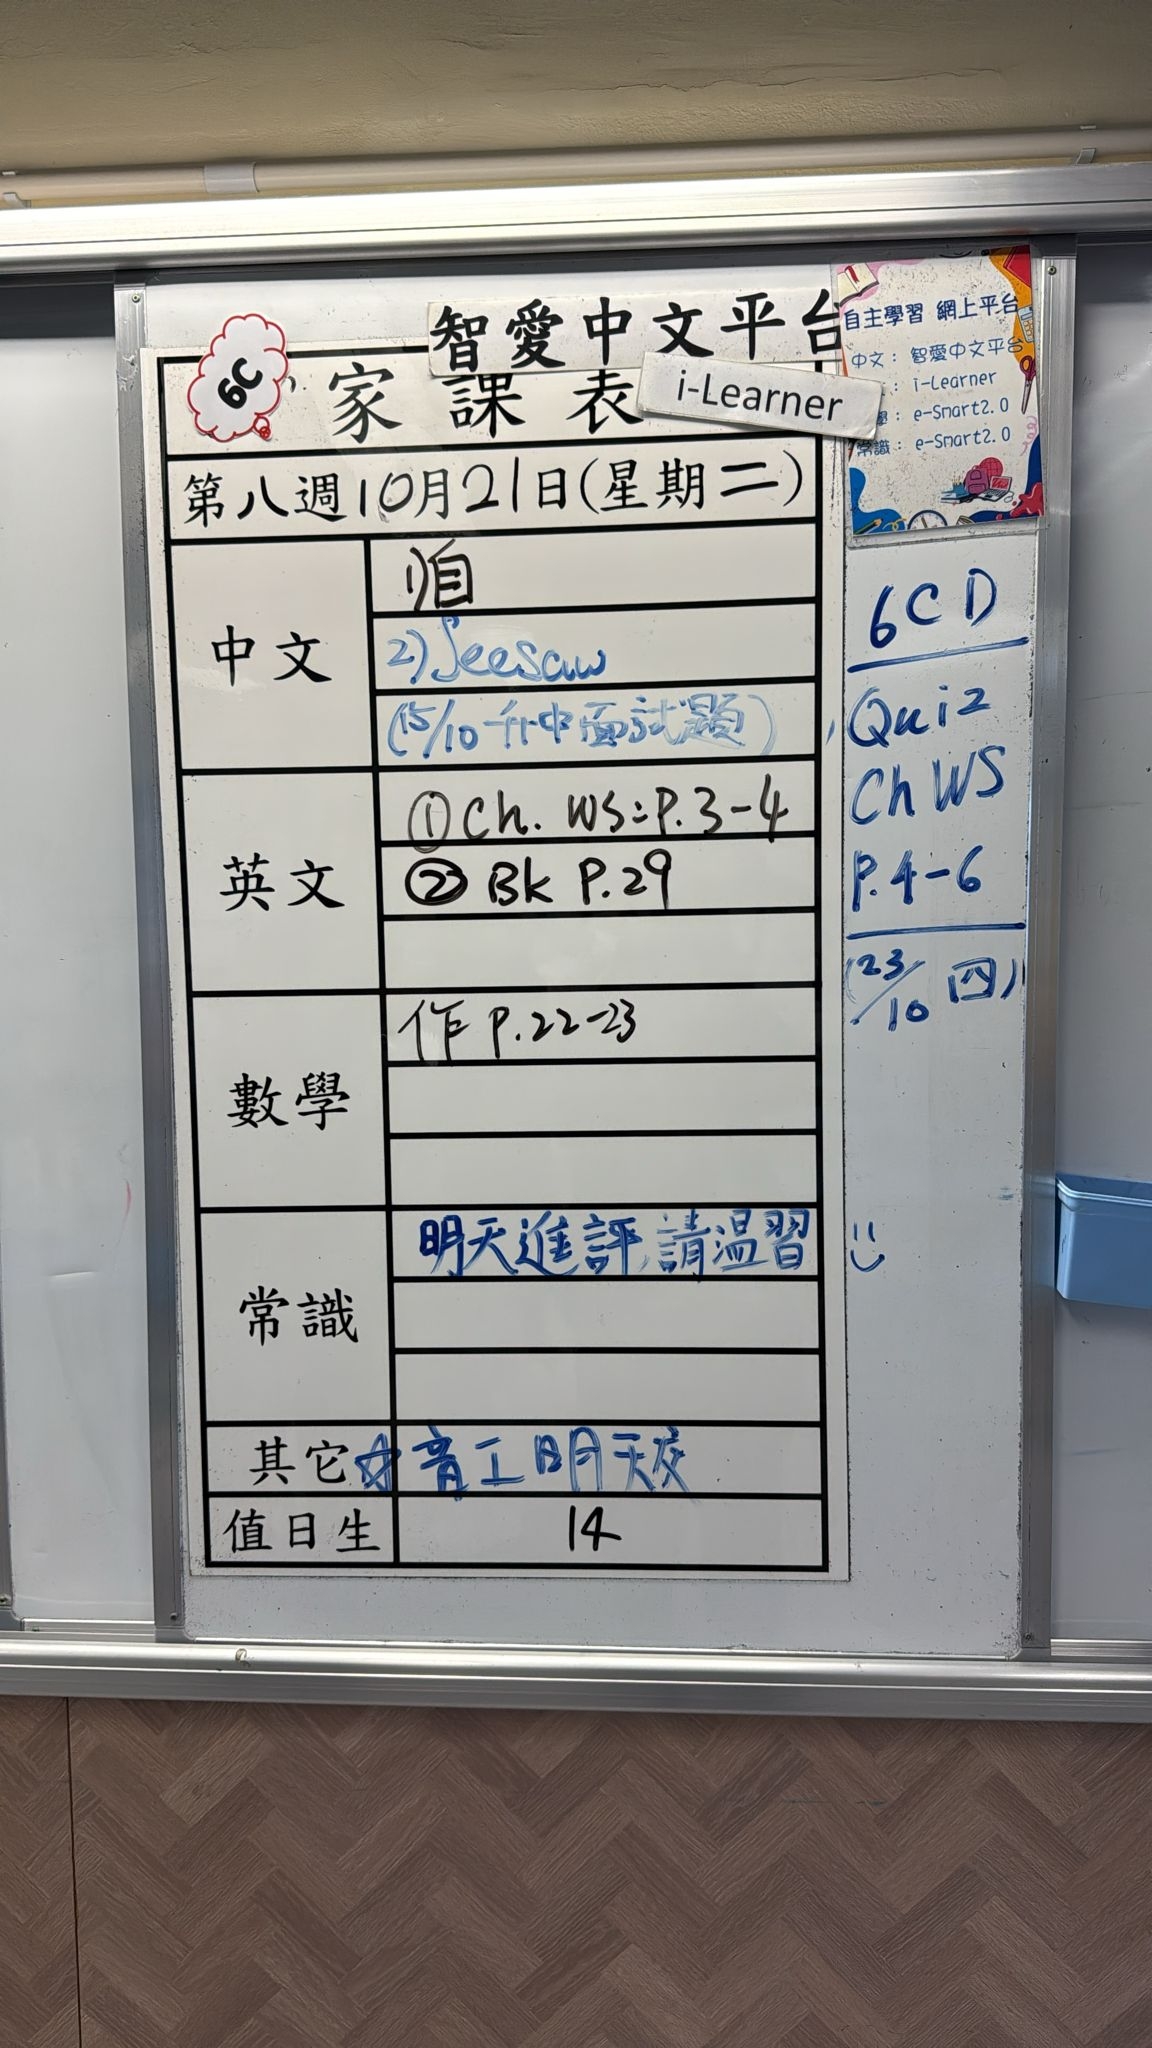 智愛中文平台
6C
家課表
i-Learner
第八週10月21日(星期二)
中文
1)自
2)Seesaw
(15/10 升中面試題)
英文
① Ch. WS: P.3-4
② Bk P.29
數學
作 P.22-23
常識
明天進評,請溫習
其它
☆ 育工明天交
值日生
14
自主學習 網上平台
中文: 智愛中文平台
: i-Learner
學: e-Smart2.0
常識: e-Smart2.0
6CD
Quiz
Ch WS
P.4-6
(23/10 四)